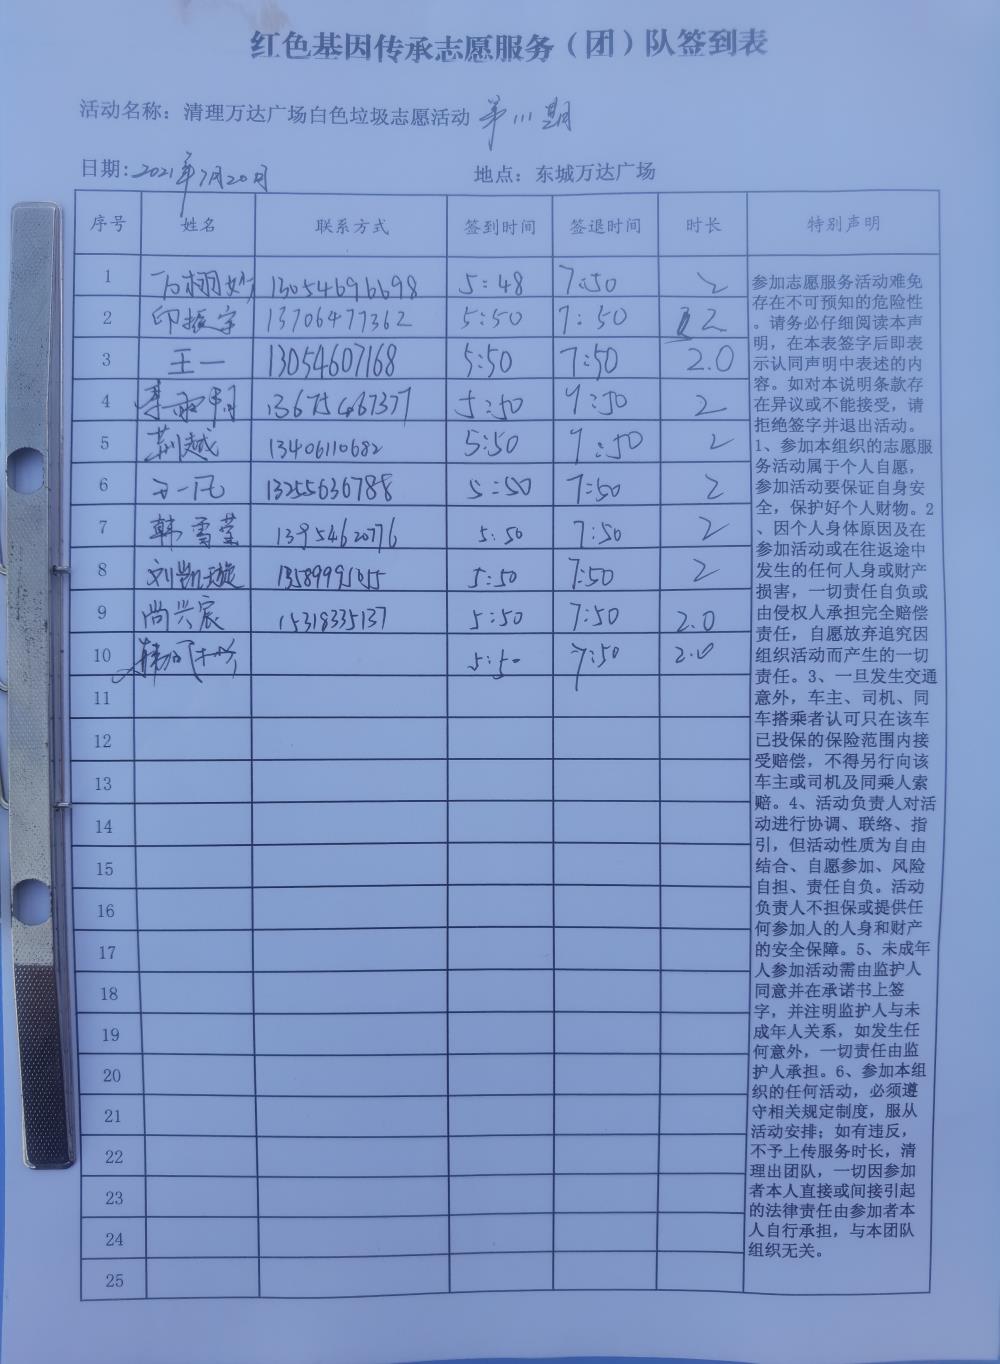 红色基因传承志愿服务（团）队签到表
活动名称：清理万达广场白色垃圾志愿活动 第111期
日期：2021年7月20日 地点：东城万达广场
序号 姓名 联系方式 签到时间 签退时间 时长 特别声明
1 13054696698 5:48 7:50 2
2 印振宇 13706477362 5:50 7:50 2
3 王一 13054607168 5:50 7:50 2.0
4 5:50 7:50 2
5 荆越 13406110682 5:50 7:50 2
6 王一凡 13255636788 5:50 7:50 2
7 韩雪莹 5:50 7:50 2
8 刘凯璇 5:50 7:50 2
9 尚兴宸 15318335137 5:50 7:50 2.0
10 5:50 7:50 2.0
11
12
13
14
15
16
17
18
19
20
21
22
23
24
25
参加志愿服务活动难免
存在不可预知的危险性
。请务必仔细阅读本声
明，在本表签字后即表
示认同声明中表述的内
容。如对本说明条款存
在异议或不能接受，请
拒绝签字并退出活动。
1、参加本组织的志愿服
务活动属于个人自愿，
参加活动要保证自身安
全，保护好个人财物。2
、因个人身体原因及在
参加活动或在往返途中
发生的任何人身或财产
损害，一切责任自负或
由侵权人承担完全赔偿
责任，自愿放弃追究因
组织活动而产生的一切
责任。3、一旦发生交通
意外，车主、司机、同
车搭乘者认可只在该车
已投保的保险范围内接
受赔偿，不得另行向该
车主或司机及同乘人索
赔。4、活动负责人对活
动进行协调、联络、指
引，但活动性质为自由
结合、自愿参加、风险
自担、责任自负。活动
负责人不担保或提供任
何参加人的人身和财产
的安全保障。5、未成年
人参加活动需由监护人
同意并在承诺书上签
字，并注明监护人与未
成年人关系，如发生任
何意外，一切责任由监
护人承担。6、参加本组
织的任何活动，必须遵
守相关规定制度，服从
活动安排；如有违反，
不予上传服务时长，清
理出团队，一切因参加
者本人直接或间接引起
的法律责任由参加者本
人自行承担，与本团队
组织无关。